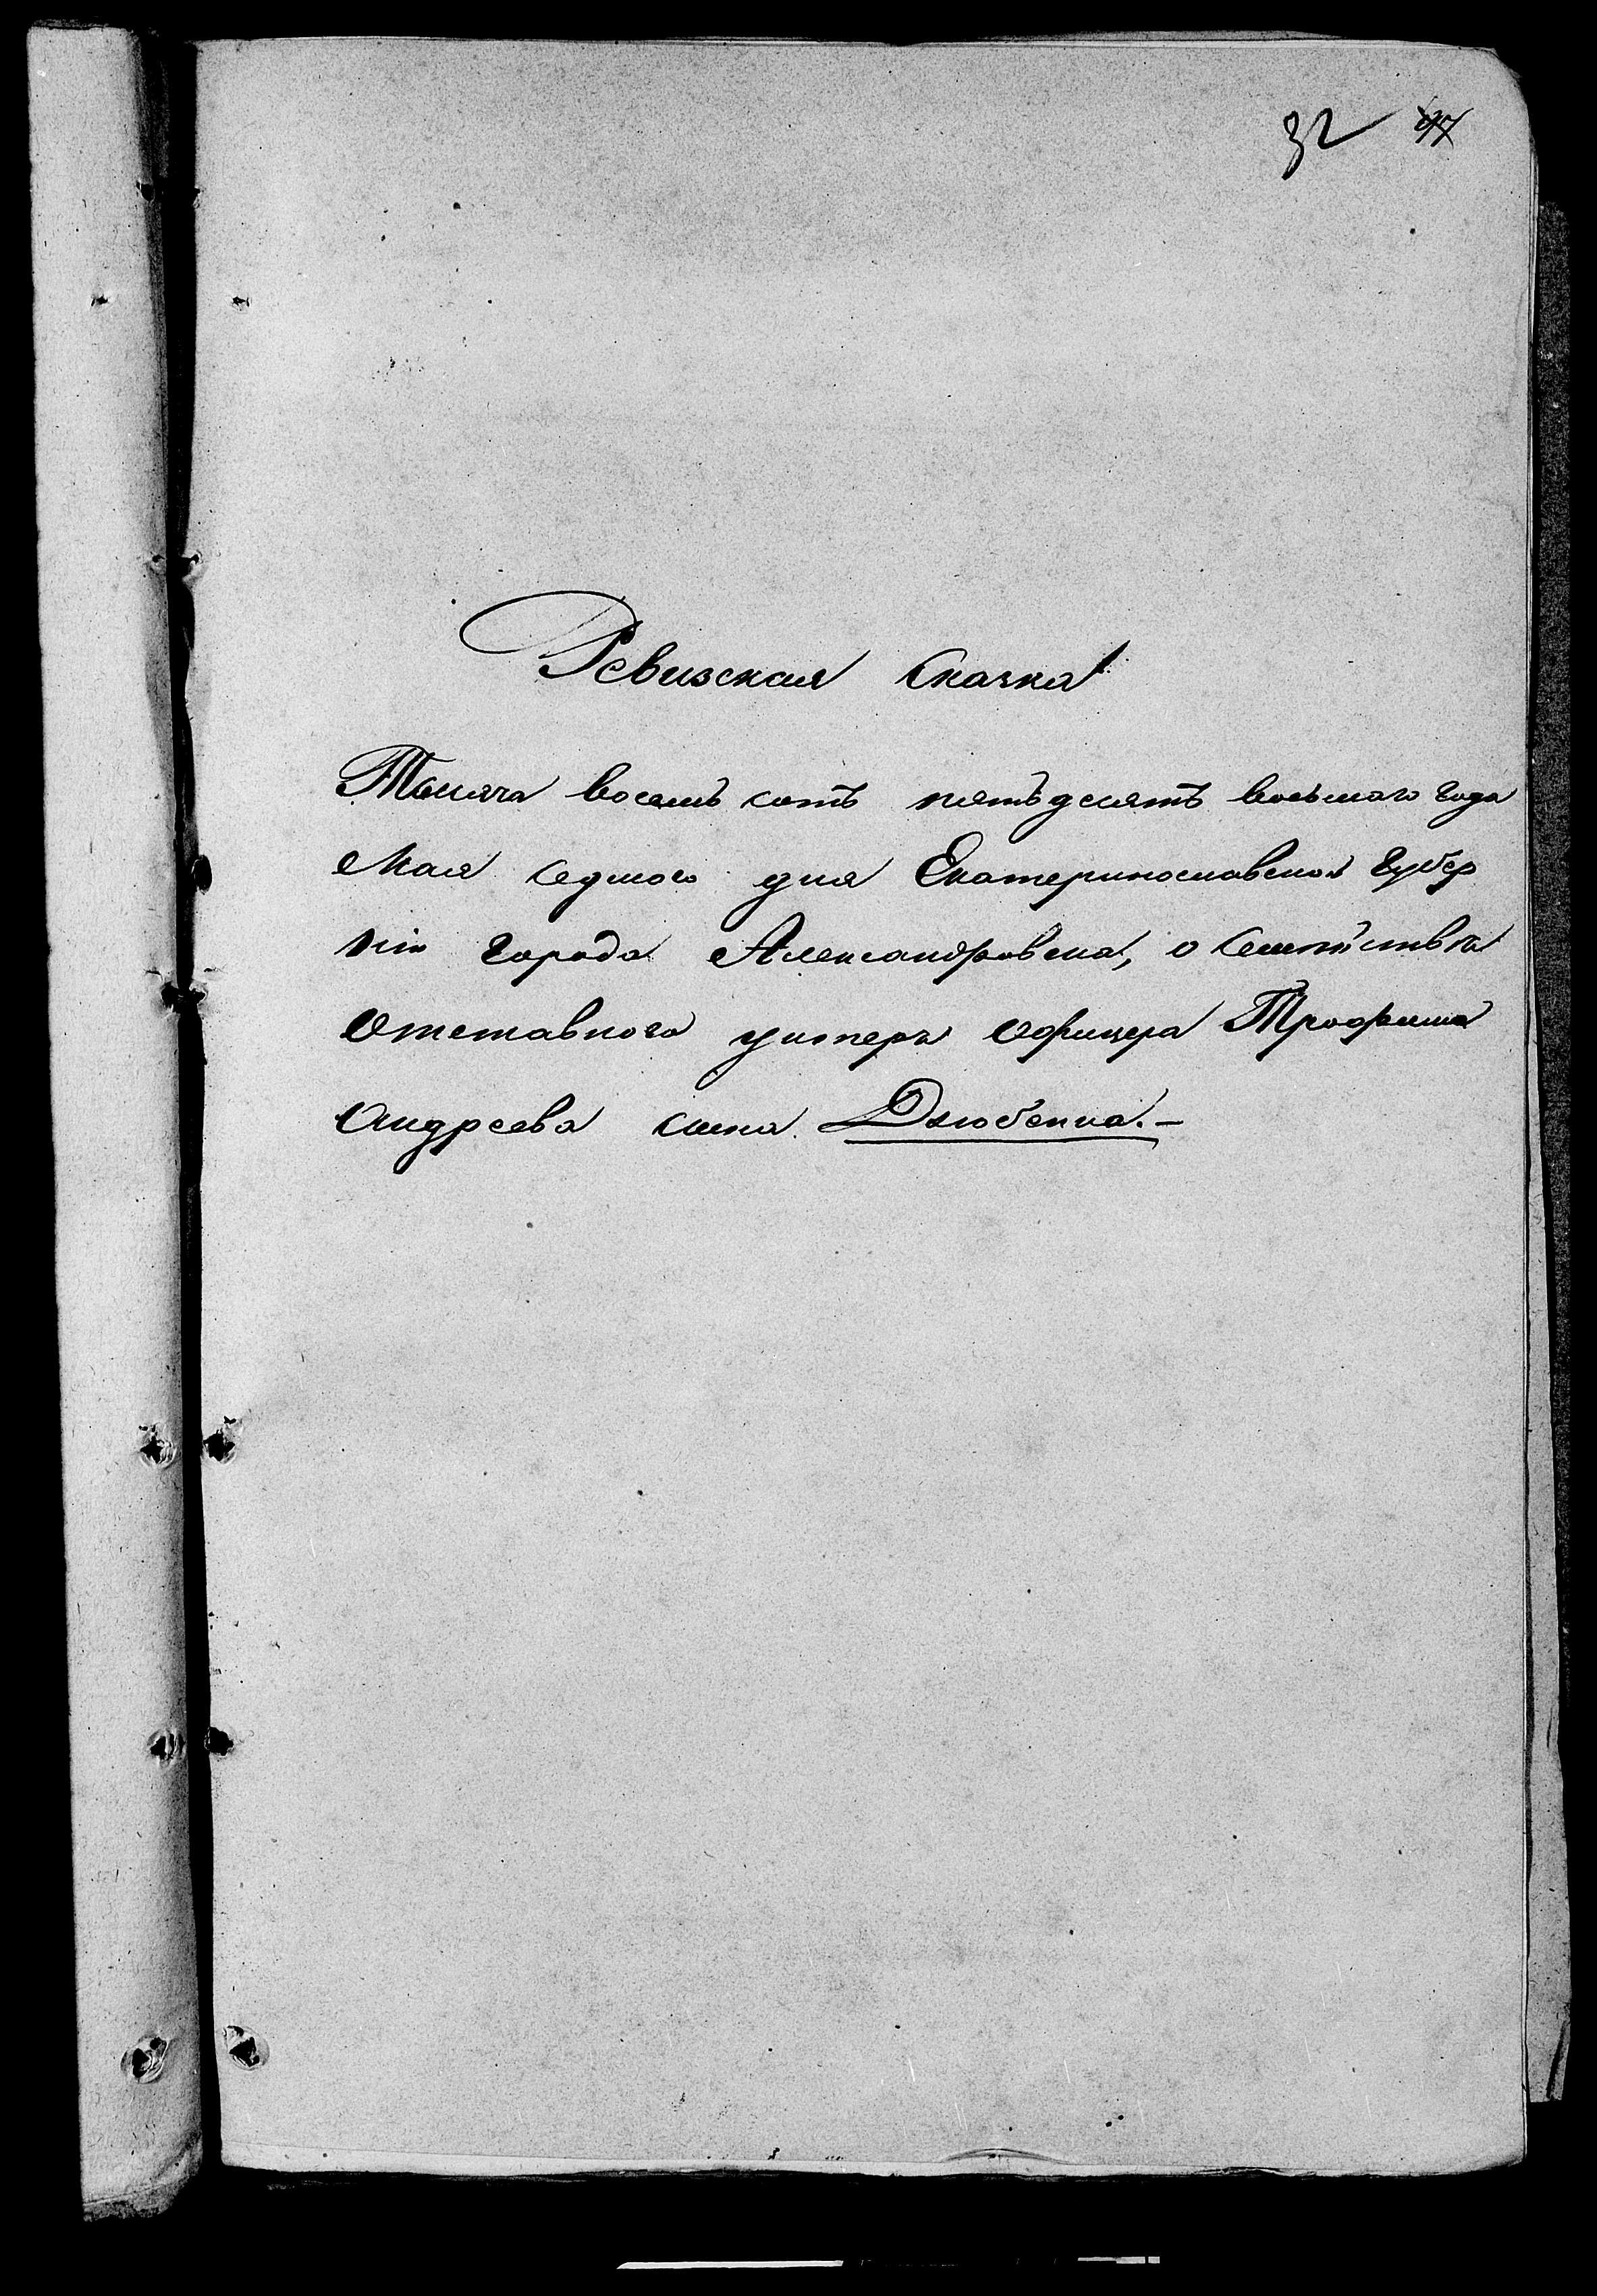 32 97
Ревизская Сказка
Тысяча восемь сотъ пятьдесятъ восьмаго года
Мая седмого дня Екатеринославской Губер
ніи города Александровска, о Семѣйствѣ
Отставного унтеръ Офицера Трофима
Андреева сына Дзюбенка.-